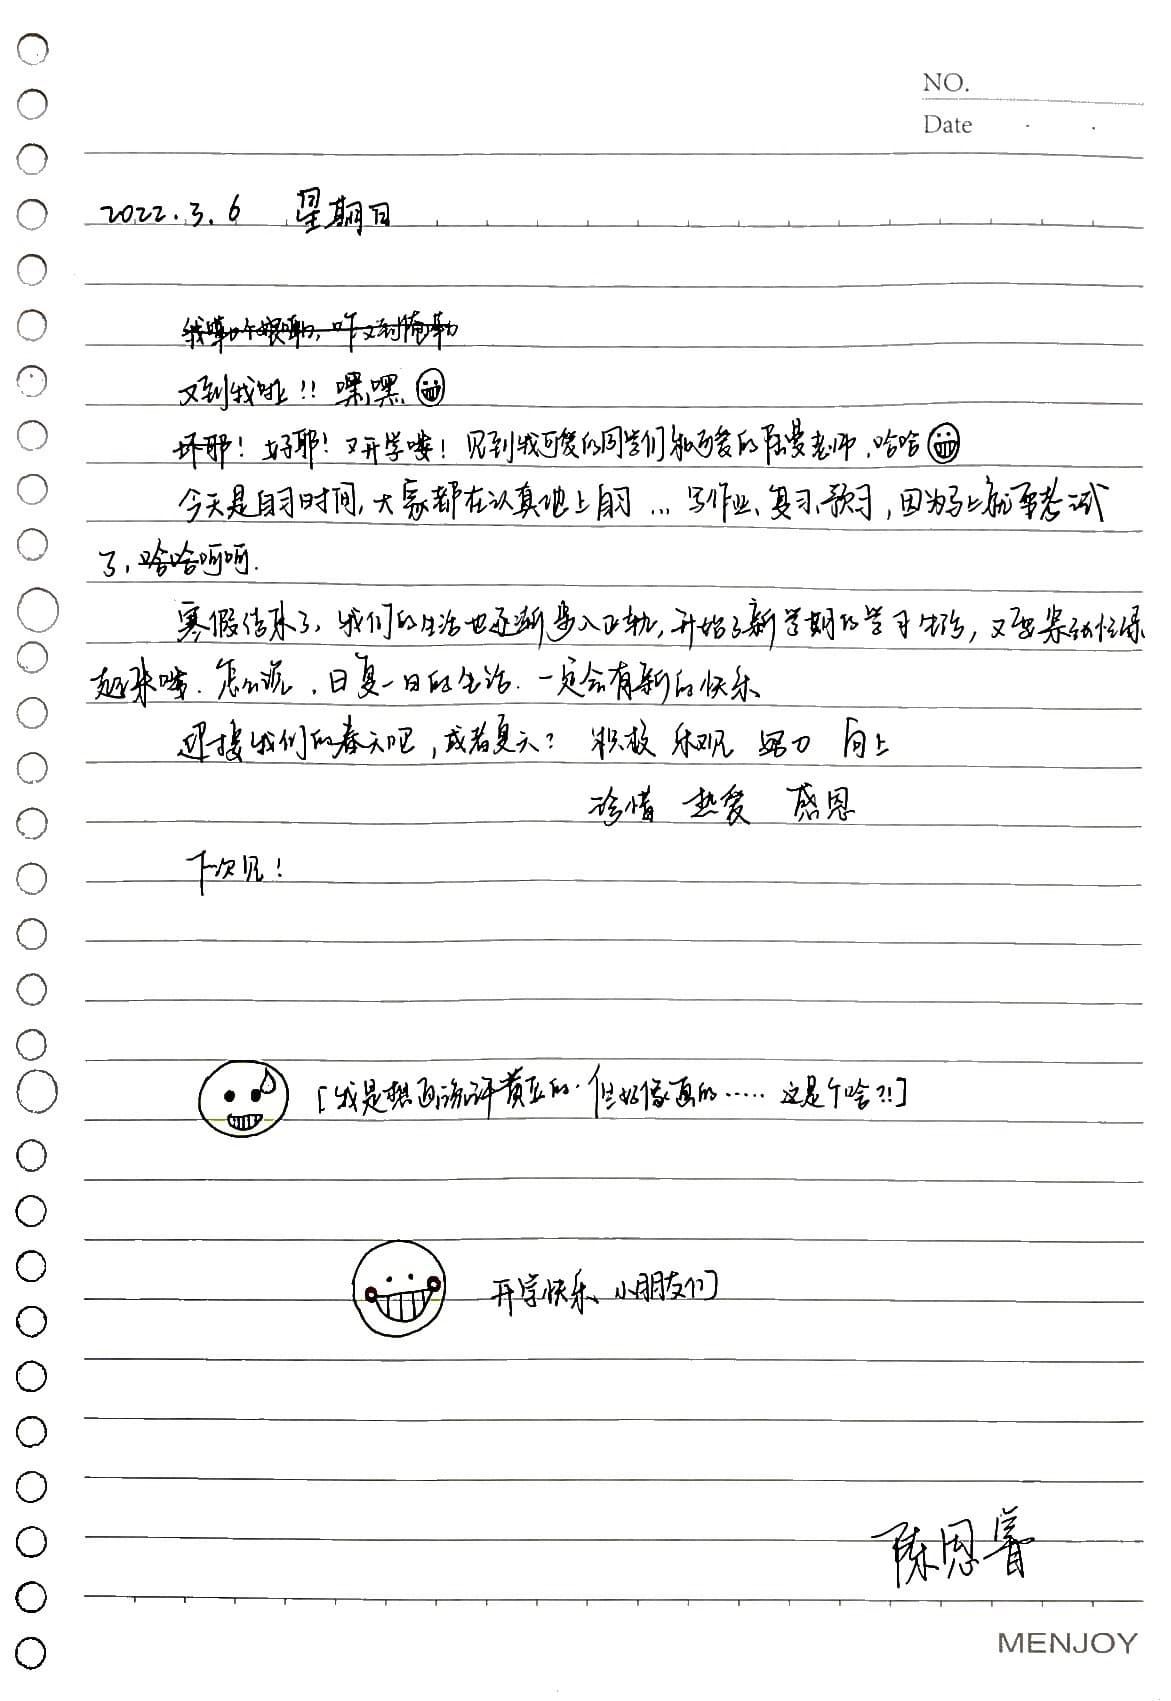 NO.
Date
2022.3.6 星期日
又到我啦!! 嘿嘿
坏耶! 好耶! 又开学喽! 见到我可爱的同学们和可爱的陈曼老师,哈哈
今天是自习时间,大家都在认真地上自习...写作业、复习、预习,因为马上就要考试
了,哈哈呵呵.
寒假结束了,我们的生活也逐渐步入正轨,开始了新学期的学习生活,又要紧张忙碌
起来喽.怎么说,日复一日的生活.一定会有新的快乐
迎接我们的春天吧,或者夏天? 积极 乐观 努力 向上
珍惜 热爱 感恩
下次见!
[我是想画滴汗黄豆的.但好像画的..... 这是个啥?!]
开学快乐、小朋友们
陈恩睿
MENJOY